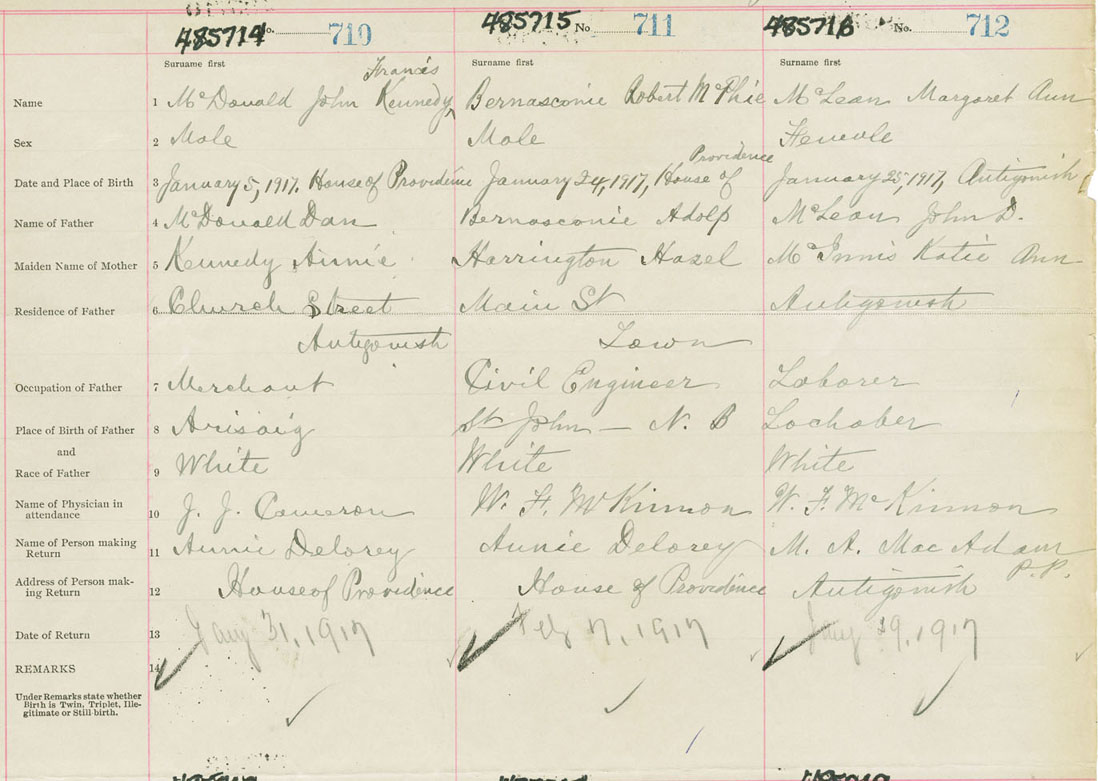 485714 No. 710 485715 No. 711 485716 No. 712
Surname first Surname first Surname first
Francis
Name 1 McDonald John Kennedy Bernasconie Robert McPhie McLean Margaret Ann
Sex 2 Male Male Female
Providence
Date and Place of Birth 3 January 5, 1917. House of Providence January 24, 1917, House of January 25, 1917, Antigonish
Name of Father 4 McDonald Dan Bernasconie Adolf McLean John D.
Maiden Name of Mother 5 Kennedy Annie Harrington Hazel McInnis Katie Ann
Residence of Father 6 Church Street Main St Antigonish
Antigonish Town
Occupation of Father 7 Merchant Civil Engineer Laborer
Place of Birth of Father 8 Arisaig St John — N. B Lochaber
and
Race of Father 9 White White White
Name of Physician in
attendance 10 J. J. Cameron W. F. McKinnon W. F. McKinnon
Name of Person making
Return 11 Annie Delorey Annie Delorey M. A. MacAdam
P.P.
Address of Person mak-
ing Return 12 House of Providence House of Providence Antigonish
Date of Return 13 Jany 31, 1917 Feby 7, 1917 Jany 1917
REMARKS 14
Under Remarks state whether
Birth is Twin, Triplet, Ille-
gitimate or Still-birth.